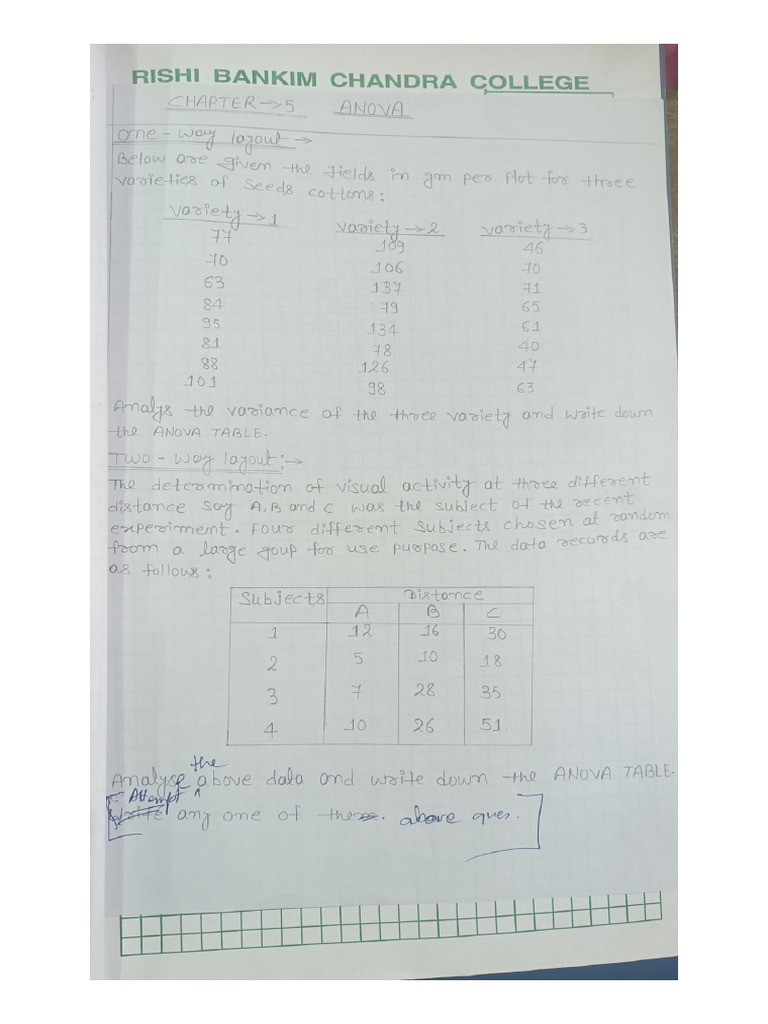 RISHI BANKIM CHANDRA COLLEGE
CHAPTER→5 ANOVA
One-way layout→
Below are given the Yields in gm per Plot for three
varieties of Seeds cottons:
Variety→1 Variety→2 Variety→3
77 109 46
70 106 70
63 137 71
84 79 65
95 134 61
81 78 40
88 126 47
101 98 63
Analys the variance of the three variety and write down
the ANOVA TABLE.
Two-way layout:→
The determination of visual activity at three different
distance say A, B and C was the subject of the recent
experiment. Four different subjects chosen at random
from a large goup for use purpose. The data records are
as follows:
Subjects Distance
A B C
1 12 16 30
2 5 10 18
3 7 28 35
4 10 26 51
the
Analyse above data and write down the ANOVA TABLE.
Attempt
Write any one of the above ques.